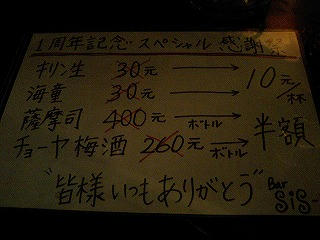 1周年記念スペシャル感謝祭
キリン生 30元 → 10元/杯
海童 30元 →
薩摩司 400元 ボトル → 半額
チョーヤ梅酒 260元 ボトル →
"皆様いつもありがとう" Bar SiS-